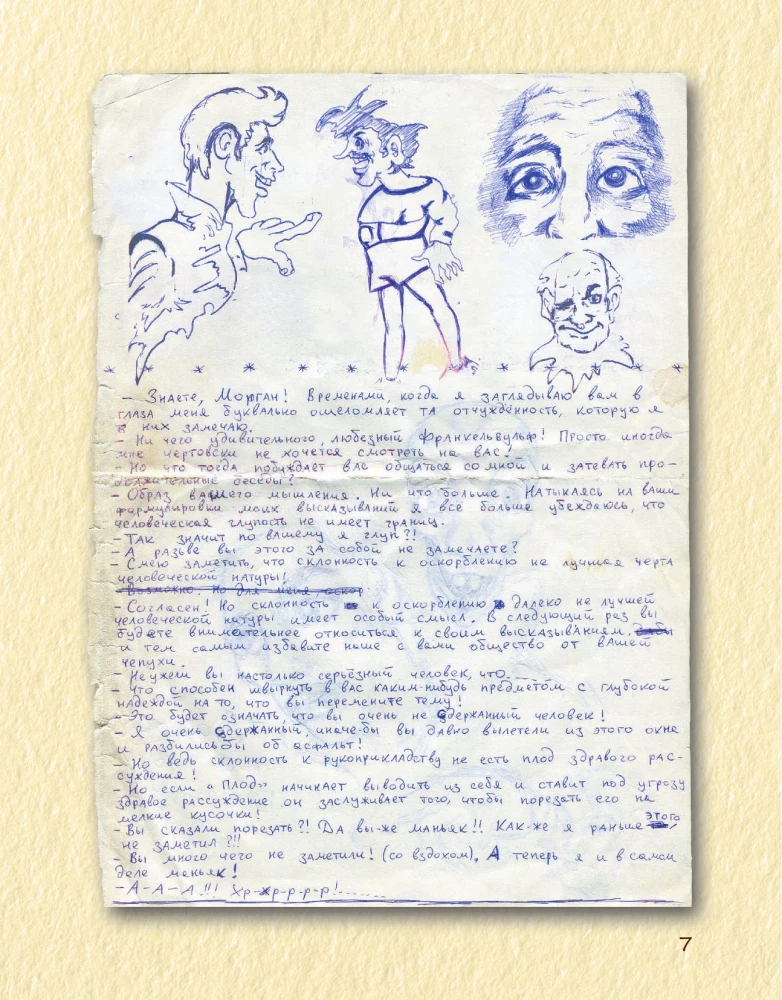 * * * * * * * * * * * * *
— Знаете, Морган! Временами, когда я заглядываю вам в
глаза меня буквально ошеломляет та отчуждённость, которую я
в них замечаю.
– Ни чего удивительного, любезный Франкельвульф! Просто иногда
мне чертовски не хочется смотреть на вас!
– Но что тогда побуждает вас общаться со мной и затевать про-
должительные беседы?
– Образ вашего мышления. Ни что больше. Натыкаясь на ваши
формулировки моих высказываний я всё больше убеждаюсь, что
человеческая глупость не имеет границ.
– Так значит по вашему я глуп?!
– А разьве вы этого за собой не замечаете?
– Смею заметить, что склонность к оскорблению не лучшая черта
человеческой натуры!
– Возможно, но для меня оскор
– Согласен! Но склонность к оскорблению далеко не лучшей
человеческой натуры имеет особый смысл. В следующий раз вы
будете внимательнее относиться к своим высказываниям,
и тем самым избавите наше с вами общество от вашей
чепухи.
– Неужели вы настолько серьёзный человек, что...
– Что способен швырнуть в вас каким-нибудь предметом с глубокой
надеждой на то, что вы перемените тему!
– Это будет означать, что вы очень не сдержанный человек!
– Я очень сдержанный, иначе-бы вы давно вылетели из этого окна
и разбились бы об асфальт!
– Но ведь склонность к рукоприкладству не есть плод здравого рас-
суждения!
– Но если «Плод» начинает выводить из себя и ставит под угрозу
здравое рассуждение он заслуживает того, чтобы порезать его на
мелкие кусочки!
– Вы сказали порезать?! Да вы-же маньяк!! Как-же я раньше этого
не заметил?!!
– Вы много чего не заметили! (со вздохом), А теперь я и в самом
деле маньяк!
– А-А-А!!! Хр-хр-р-р-р!........
7